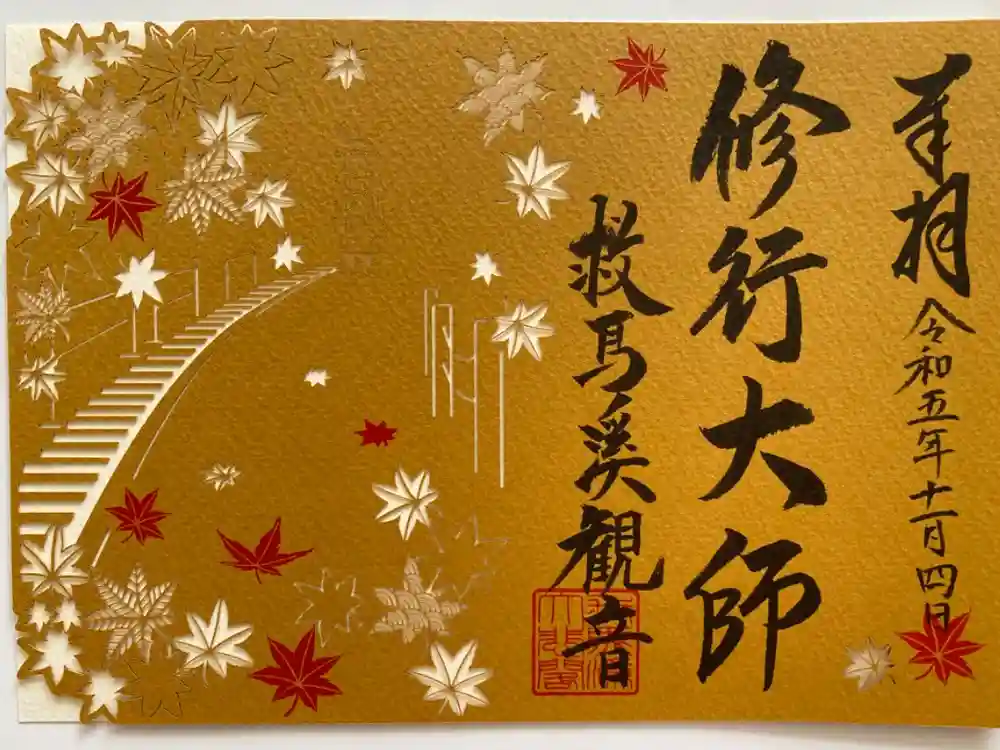 奉拝
令和五年十一月四日
修行大師
救馬溪観音